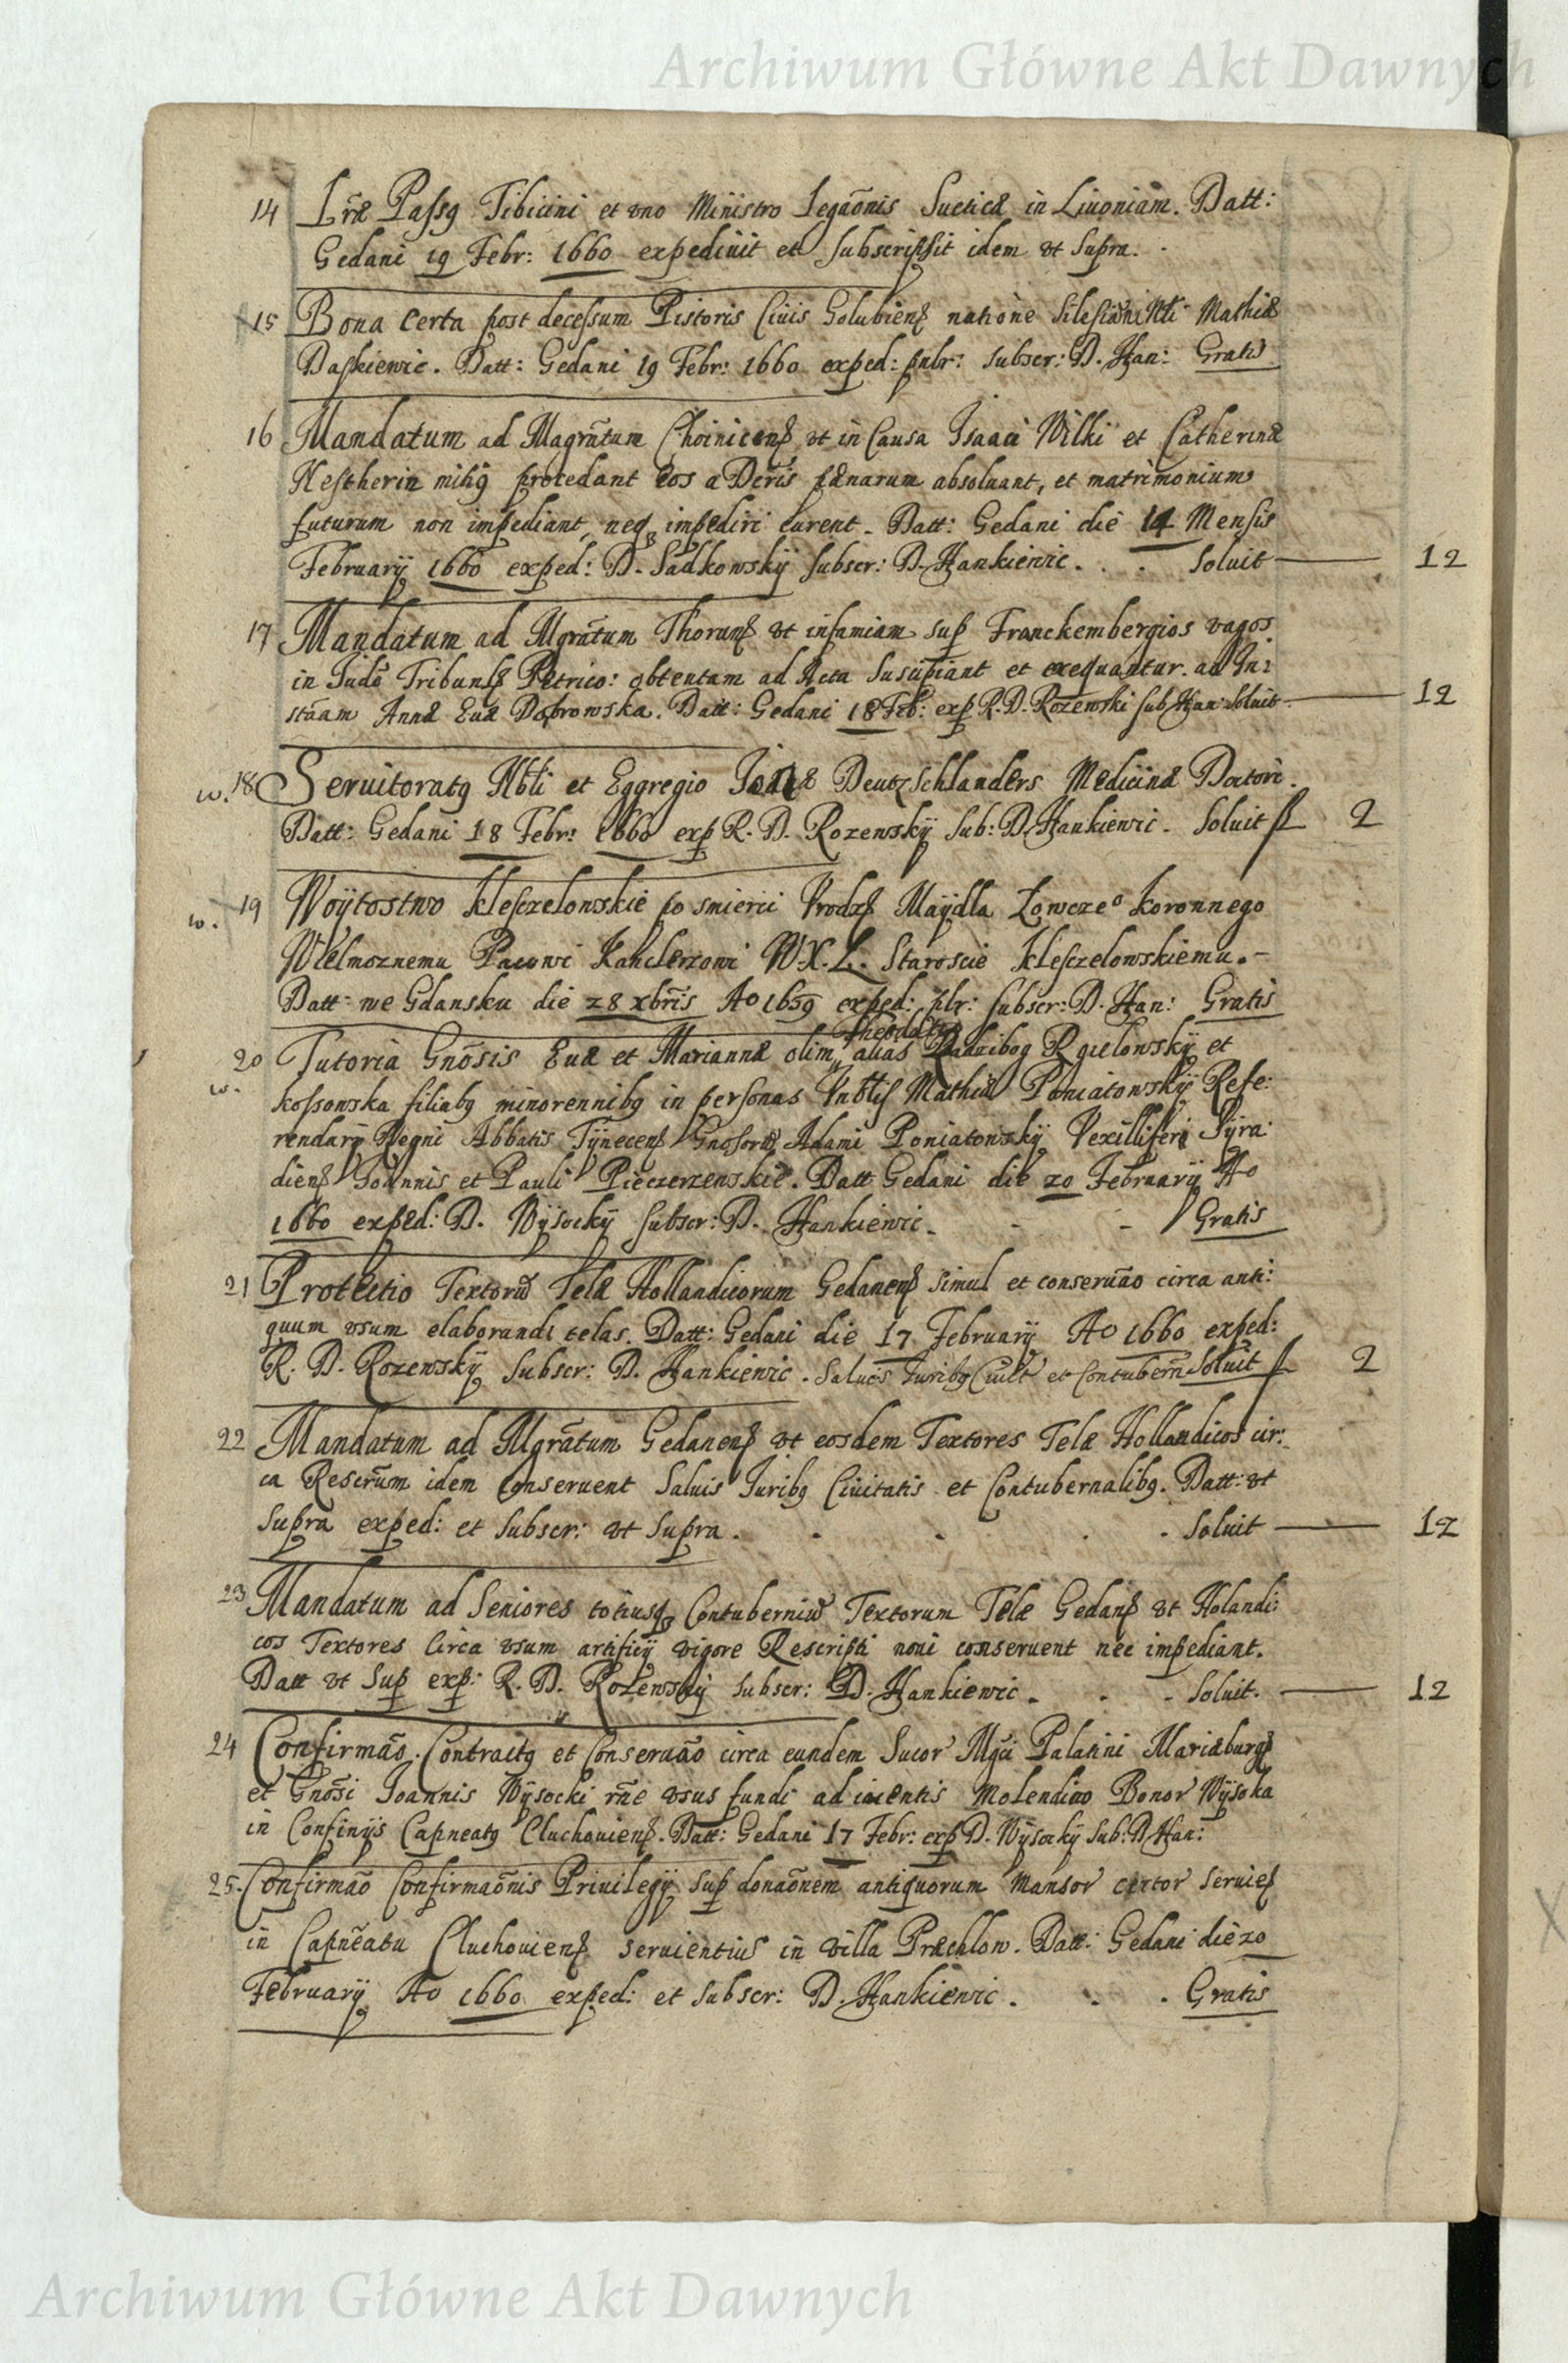 Archiwum Główne Akt Dawnych
14 Lr̃æ Passq Tibicini et vno Ministro Legãonis Sueticæ in Liuoniam. Datt:
Gedani 19 Febr: 1660 expediuit et subscripsit idem vt supra.
15 Bona Certa post decessum Pistoris Ciuis Golubiens natione Mathiæ
Daskiewic. Datt: Gedani 19 Febr: 1660 exped: subscr: D. Han: Gratis
16 Mandatum ad Magrãtum Choinicens vt in Causa Isaaci Wilki et Catherinæ
Hestherin procedant eos a pænarum absoluant, et matrimonium
futurum non impediant, neq impediri curent. Datt: Gedani die 14 Mensis
February 1660 exped: D. Sadkowskÿ subscr: D. Hankiewic. . . Soluit — 12
17 Mandatum ad Mgrãtum Thoruns vt infamiam sup Franckembergios vagos
in Judõ Tribunls Petrico: obtentam ad Acta suscipiant et exequantur. ad In:
stãam Annæ Euæ Dobrowska. Datt: Gedani 18 Feb: exp R. D. Rozewski sub Han: Soluit — 12
w. 18 Seruitoratq Nbli et Eggregio Deutzschlanders Medicinæ Doctori.
Datt: Gedani 18 Febr: 1660 exp R. D. Rozewskÿ sub: D. Hankiewic. Soluit # 2
w. 19 Woÿtostwo Kleszczelowskie po smierci Vrodzs Maÿdla Łowczeo Koronnego
Wielmoznemu Pacowi Kanclerzowi W.X.L. Staroscie Kleszczelowskiemu. -
Datt: we Gdansku die 28 xbris Ao 1659 exped: plr: subscr: D. Han: Gratis
Theodata
20 Tutoria Gnõsis Euæ et Mariannæ olim alias Rgielowskÿ et
w. Kossowska filiabq minorennibq in personas Mathiæ Poniatowskÿ Refe:
rendarÿ Regni Abbatis Tÿnecens Adami Poniatowskÿ Vexilliferi Sÿra:
diens Joannis et Pauli Pieczerzewskie. Datt Gedani die 20 February Ao
1660 exped: D. Wÿsockÿ subscr: D. Hankiewic. - - Gratis
21 Protectio Textorum Telæ Hollandicorum Gedanens simul et conseruão circa anti:
quum vsum elaborandi telas. Datt: Gedani die 17 February Ao 1660 exped:
R. D. Rozewskÿ subscr: D. Hankiewic. Saluis Juribq Ciuit et Contubern Soluit # 2
22 Mandatum ad Mgrãtum Gedanens vt eosdem Textores Telæ Hollandicos cir:
ca Rescrũm idem Conseruent Saluis Juribq Ciuitatis et Contubernalibq. Datt: vt
supra exped: et subscr: vt supra. . . . . Soluit — 12
23 Mandatum ad Seniores totiusq Contubernium Textorum Telæ Gedans vt Holandi:
cos Textores Circa vsum artificÿ vigore Rescripti noui conseruent nec impediant.
Datt vt sup exp: R. D. Rozewskÿ subscr: D. Hankiewic. . . Soluit. — 12
24 Confirmão Contractq et Conseruão circa eundem Sucor Mgci Palatini Mariæburgs
et Gnõsi Joannis Wÿsocki rñe vsus fundi adiacentis Molendino Bonor Wÿsoka
in Confinÿs Capneatq Cluchouiens. Datt: Gedani 17 Febr: exp D. Wÿsockÿ sub: D. Han:
25. Confirmão Confirmaõnis Priuilegÿ sup donaõnem antiquorum Mansor certor
in Capnẽatu Cluchouiens seruientius in villa Præchlow. Datt: Gedani die 20
February Ao 1660 exped: et subscr: D. Hankiewic. . . Gratis
Archiwum Główne Akt Dawnych